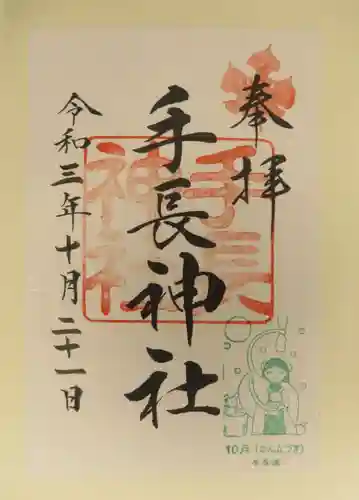 奉拝
手長神社
手長
神社
令和三年十月二十一日
10月(かんなづき)